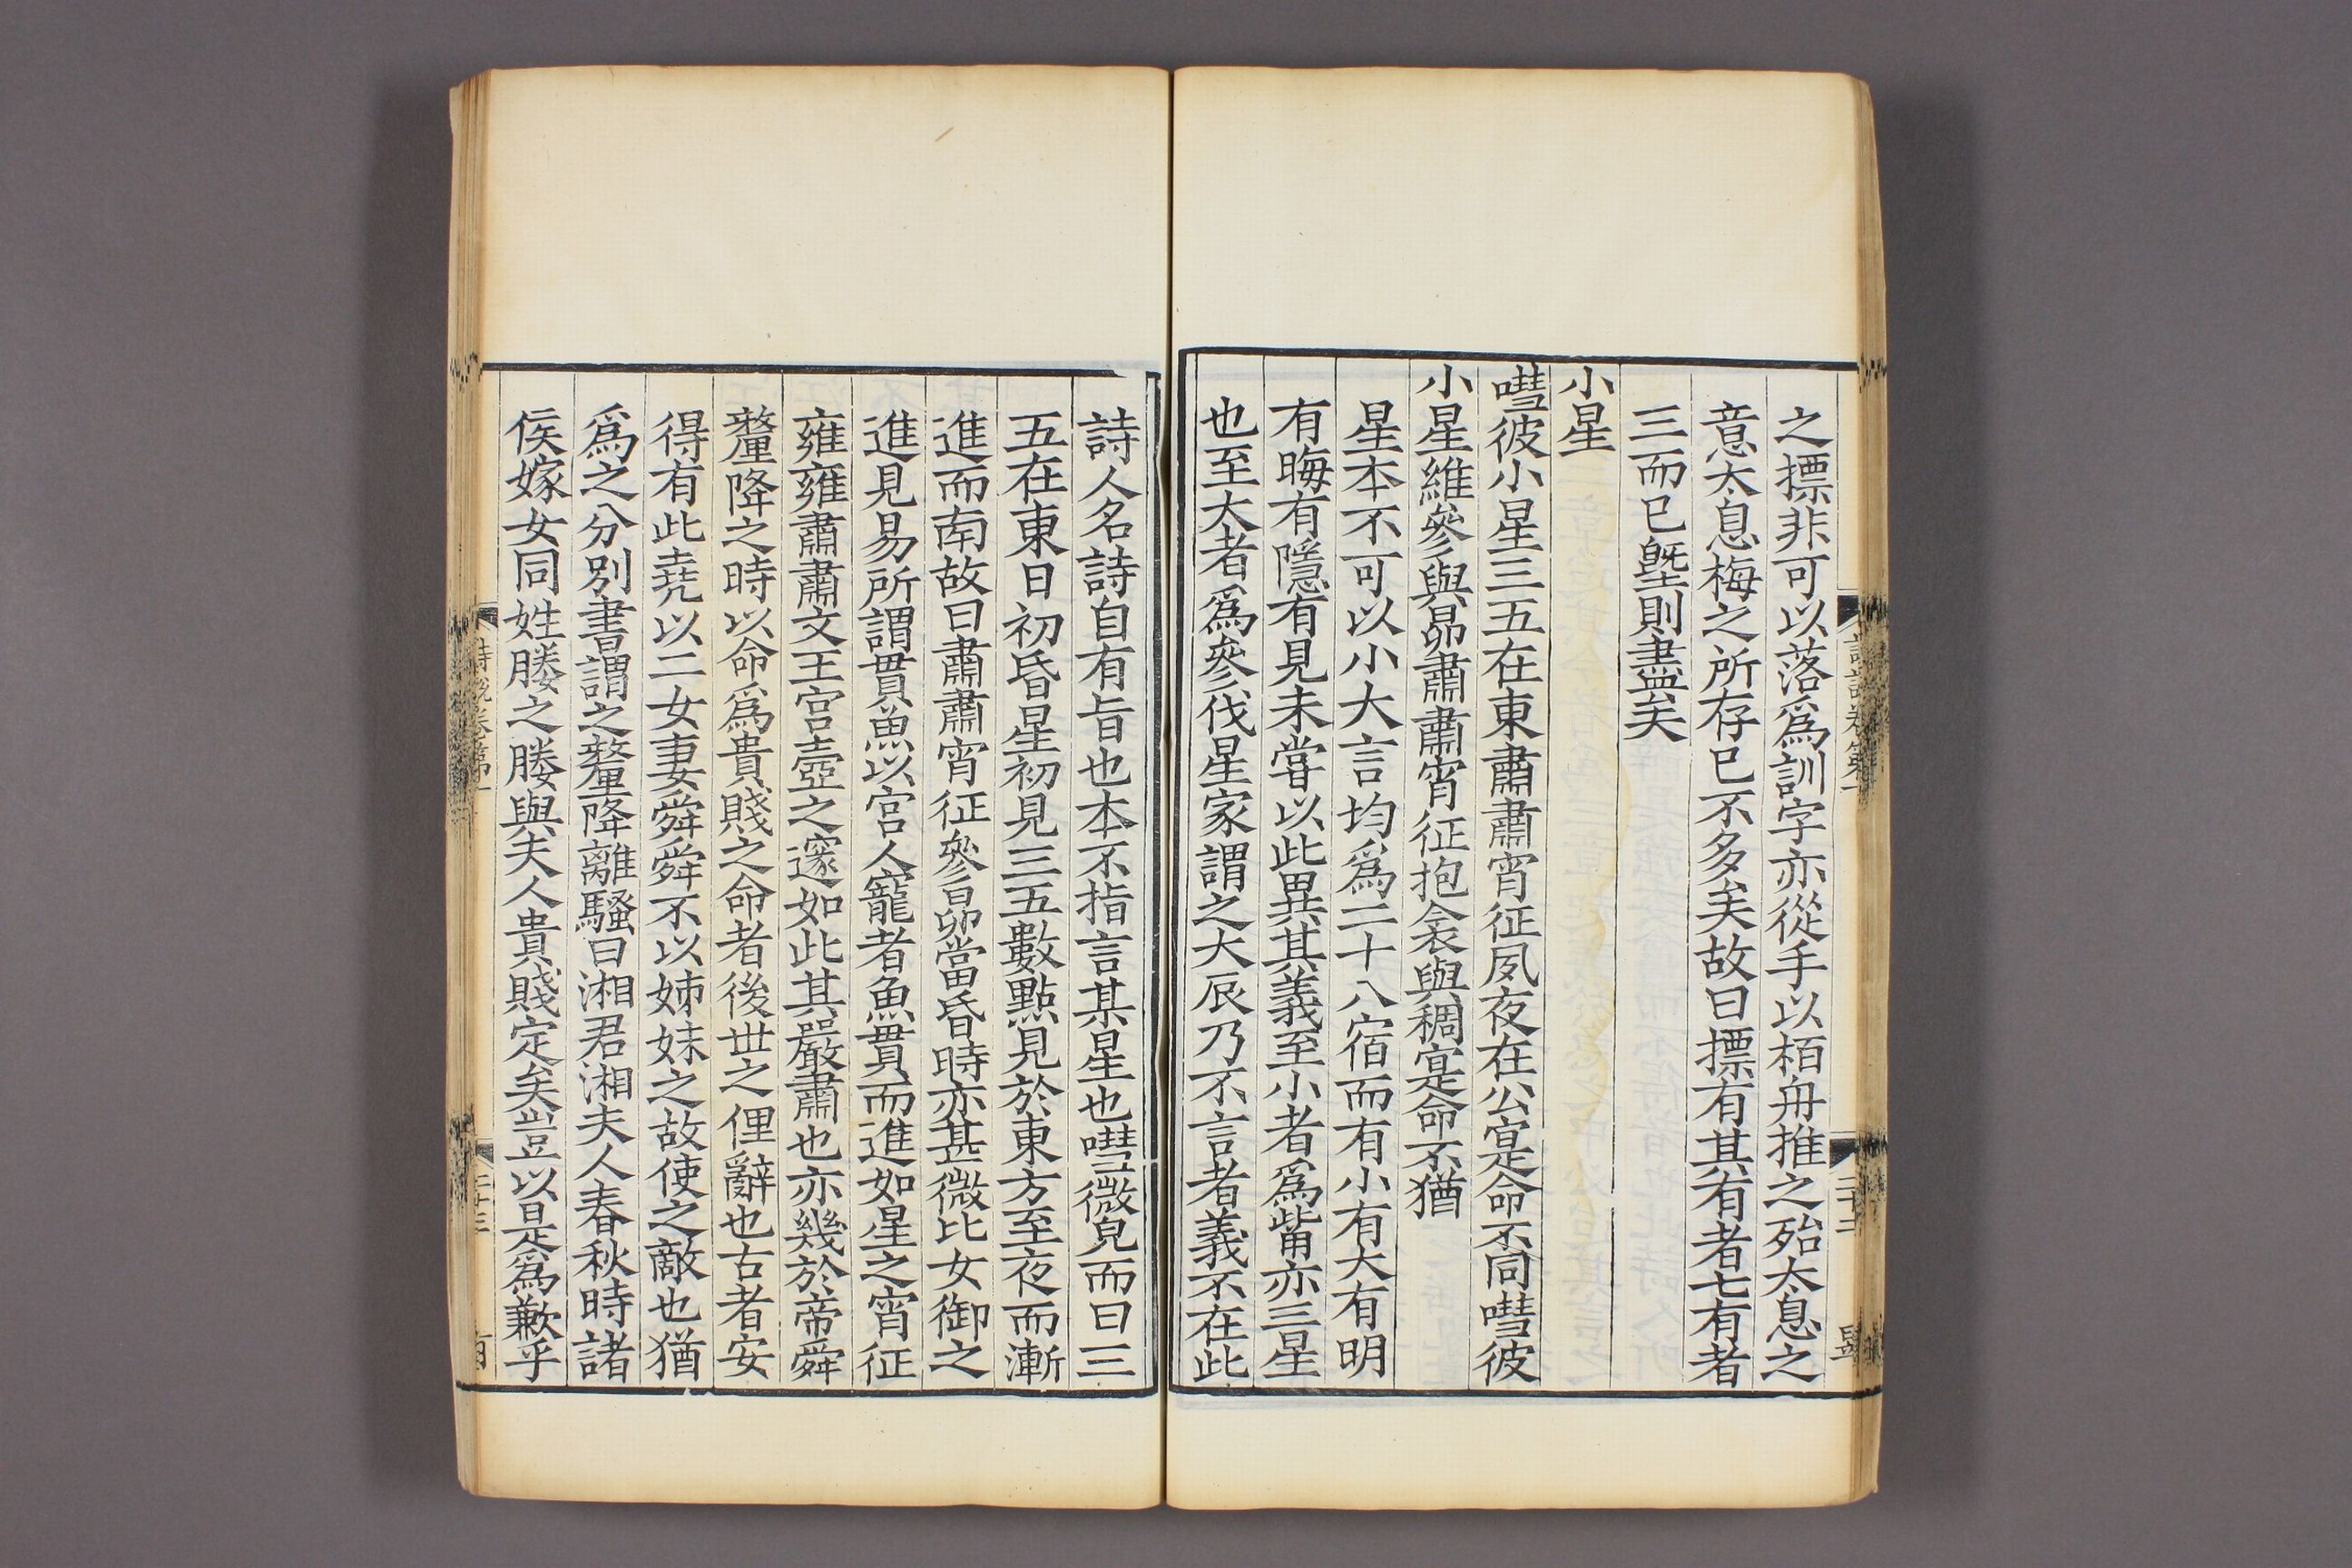 之摽非可以落爲訓字亦從手以栢舟推之殆太息之
意太息梅之所存已不多矣故曰摽有其有者七有者
三而已塈則盡矣
小星
嘒彼小星三五在東肅肅宵征夙夜在公寔命不同嘒彼
小星維參與昴肅肅宵征抱衾與稠寔命不猶
星本不可以小大言均爲二十八宿而有小有大有明
有晦有隱有見未嘗以此異其義至小者爲觜亦三星
也至大者爲參伐星家謂之大辰乃不言者義不在此
詩人名詩自有旨也本不指言某星也嘒微皃而曰三
五在東日初昏星初見三五數點見於東方至夜而漸
進而南故曰肅肅宵征參昴當昏時亦甚微比女御之
進見易所謂貫魚以宮人寵者魚貫而進如星之宵征
雍雍肅肅文王宫壼之邃如此其嚴肅也亦幾於帝舜
釐降之時以命爲貴賤之命者後世之俚辭也古者安
得有此堯以二女妻舜舜不以姊妹之故使之敵也猶
爲之分別書謂之釐降離騷曰湘君湘夫人春秋時諸
侯嫁女同姓媵之媵與夫人貴賤定矣豈以是爲歉乎
詩說卷第一
二十三